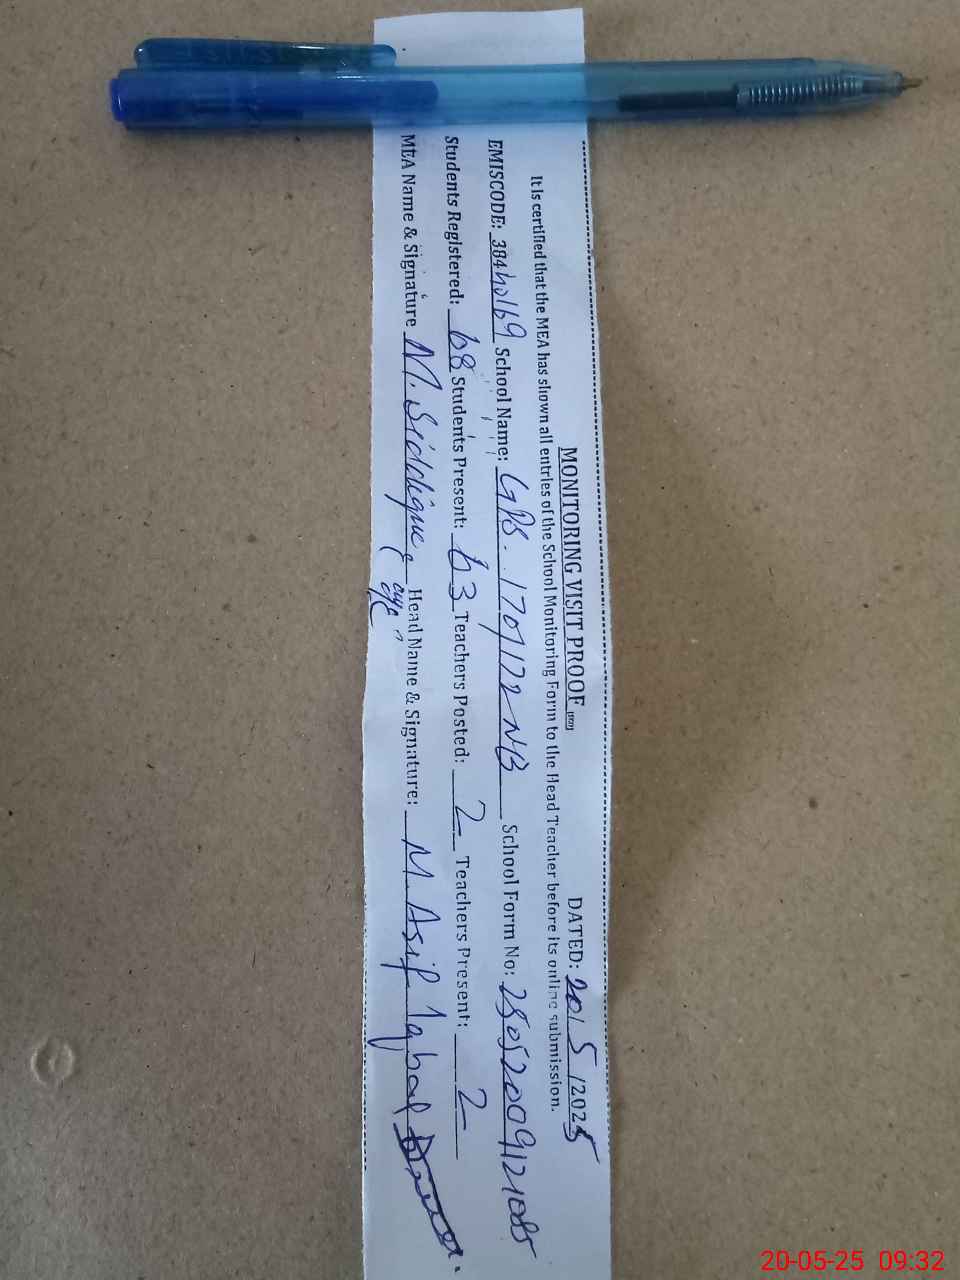 MONITORING VISIT PROOF DATED: 20/ 5 /2025
It is certified that the MEA has shown all entries of the School Monitoring Form to the Head Teacher before its online submission.
EMISCODE: 38440169 School Name: GPS. 170/172 NB School Form No:
Students Registered: 68 Students Present: 63 Teachers Posted: 2 Teachers Present: 2
MEA Name & Signature M. Siddique Head Name & Signature: M. Asif Iqbal
20-05-25 09:32